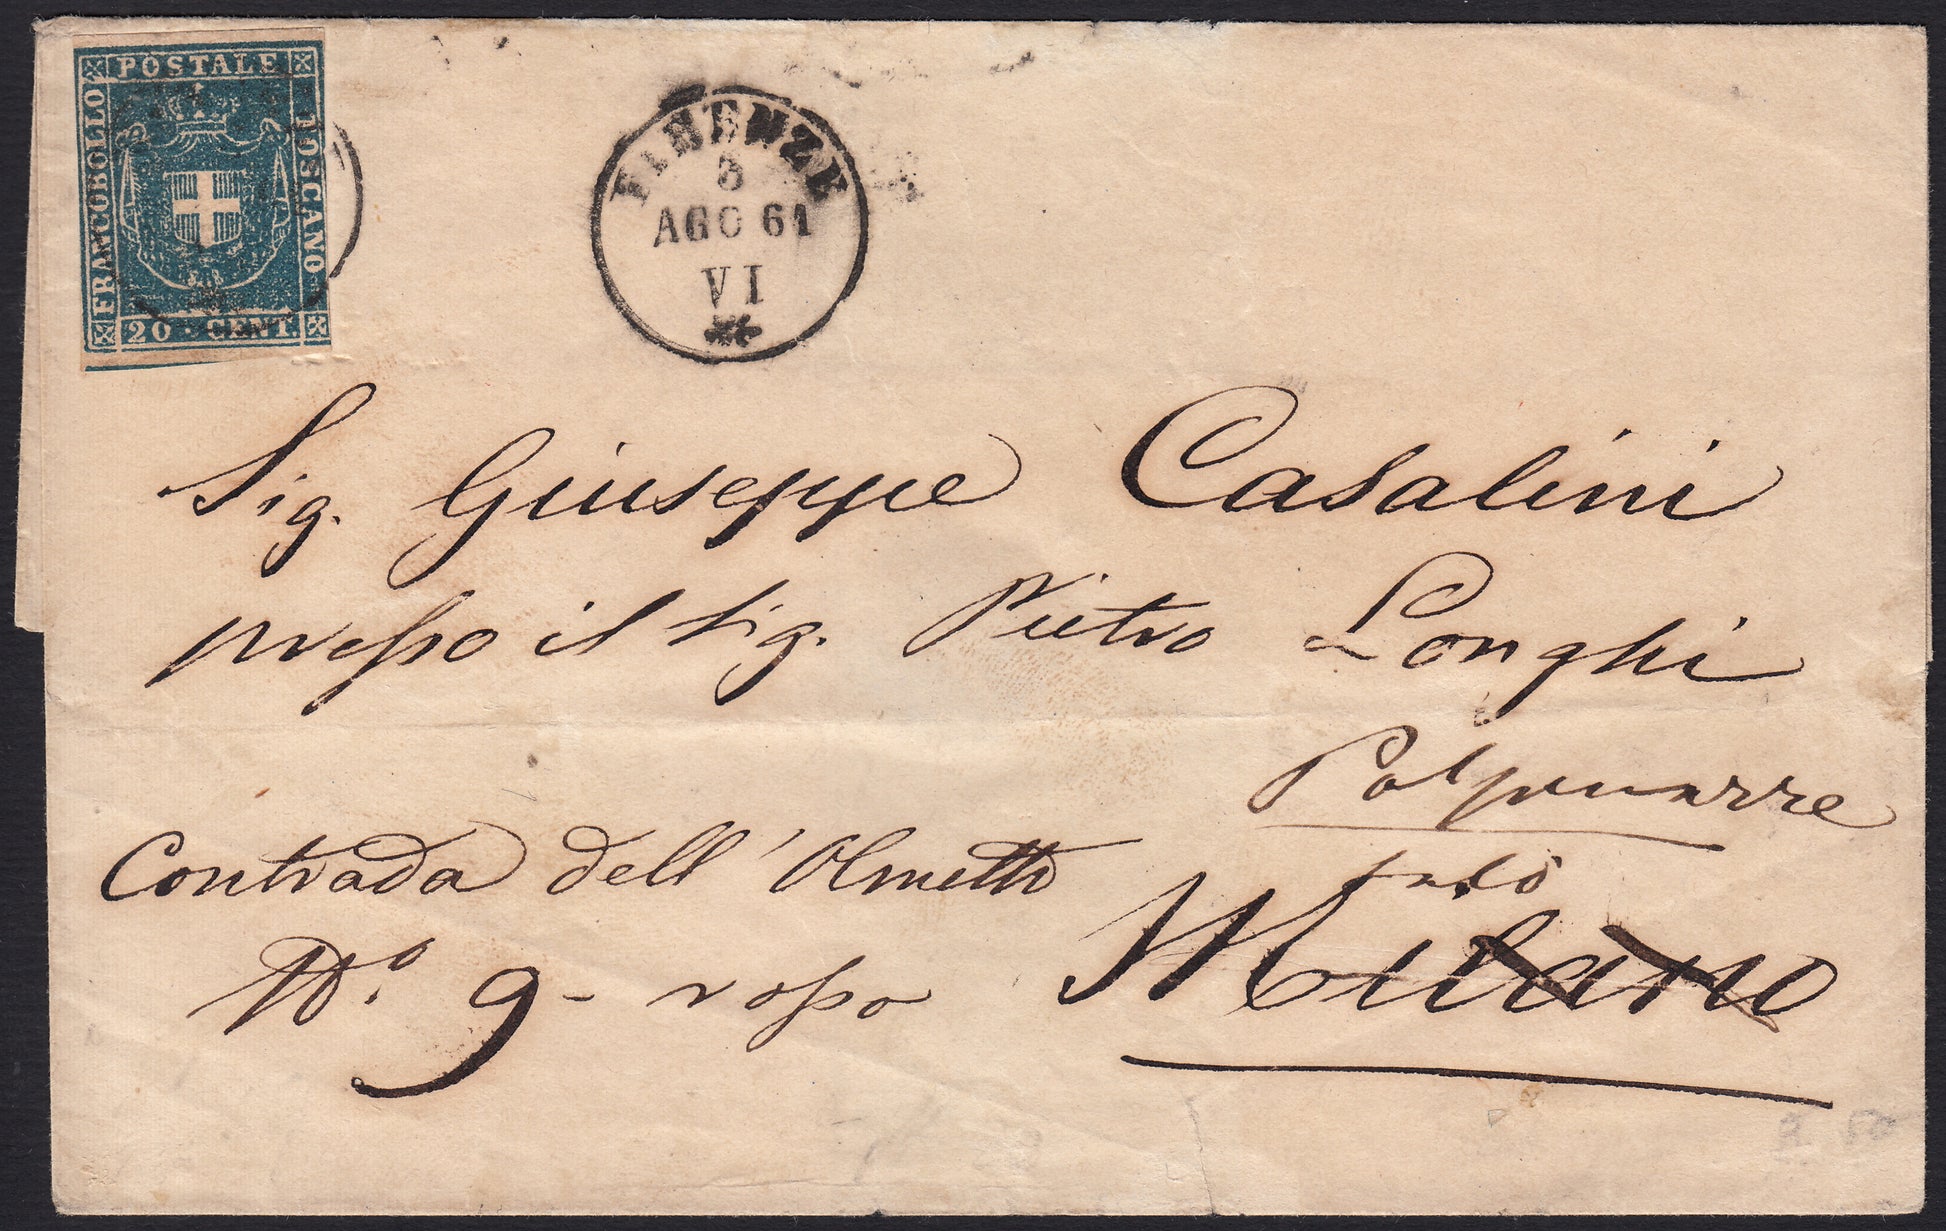 POSTALE
FRANCOBOLLO
TOSCANO
20 · CENT.
FIRENZE
3
AGO 61
VI
Sig. Giuseppe Casalini
presso il Sig. Pietro Longhi
Contrada dell'Olmetto
N.º 9 - rosso
Milano